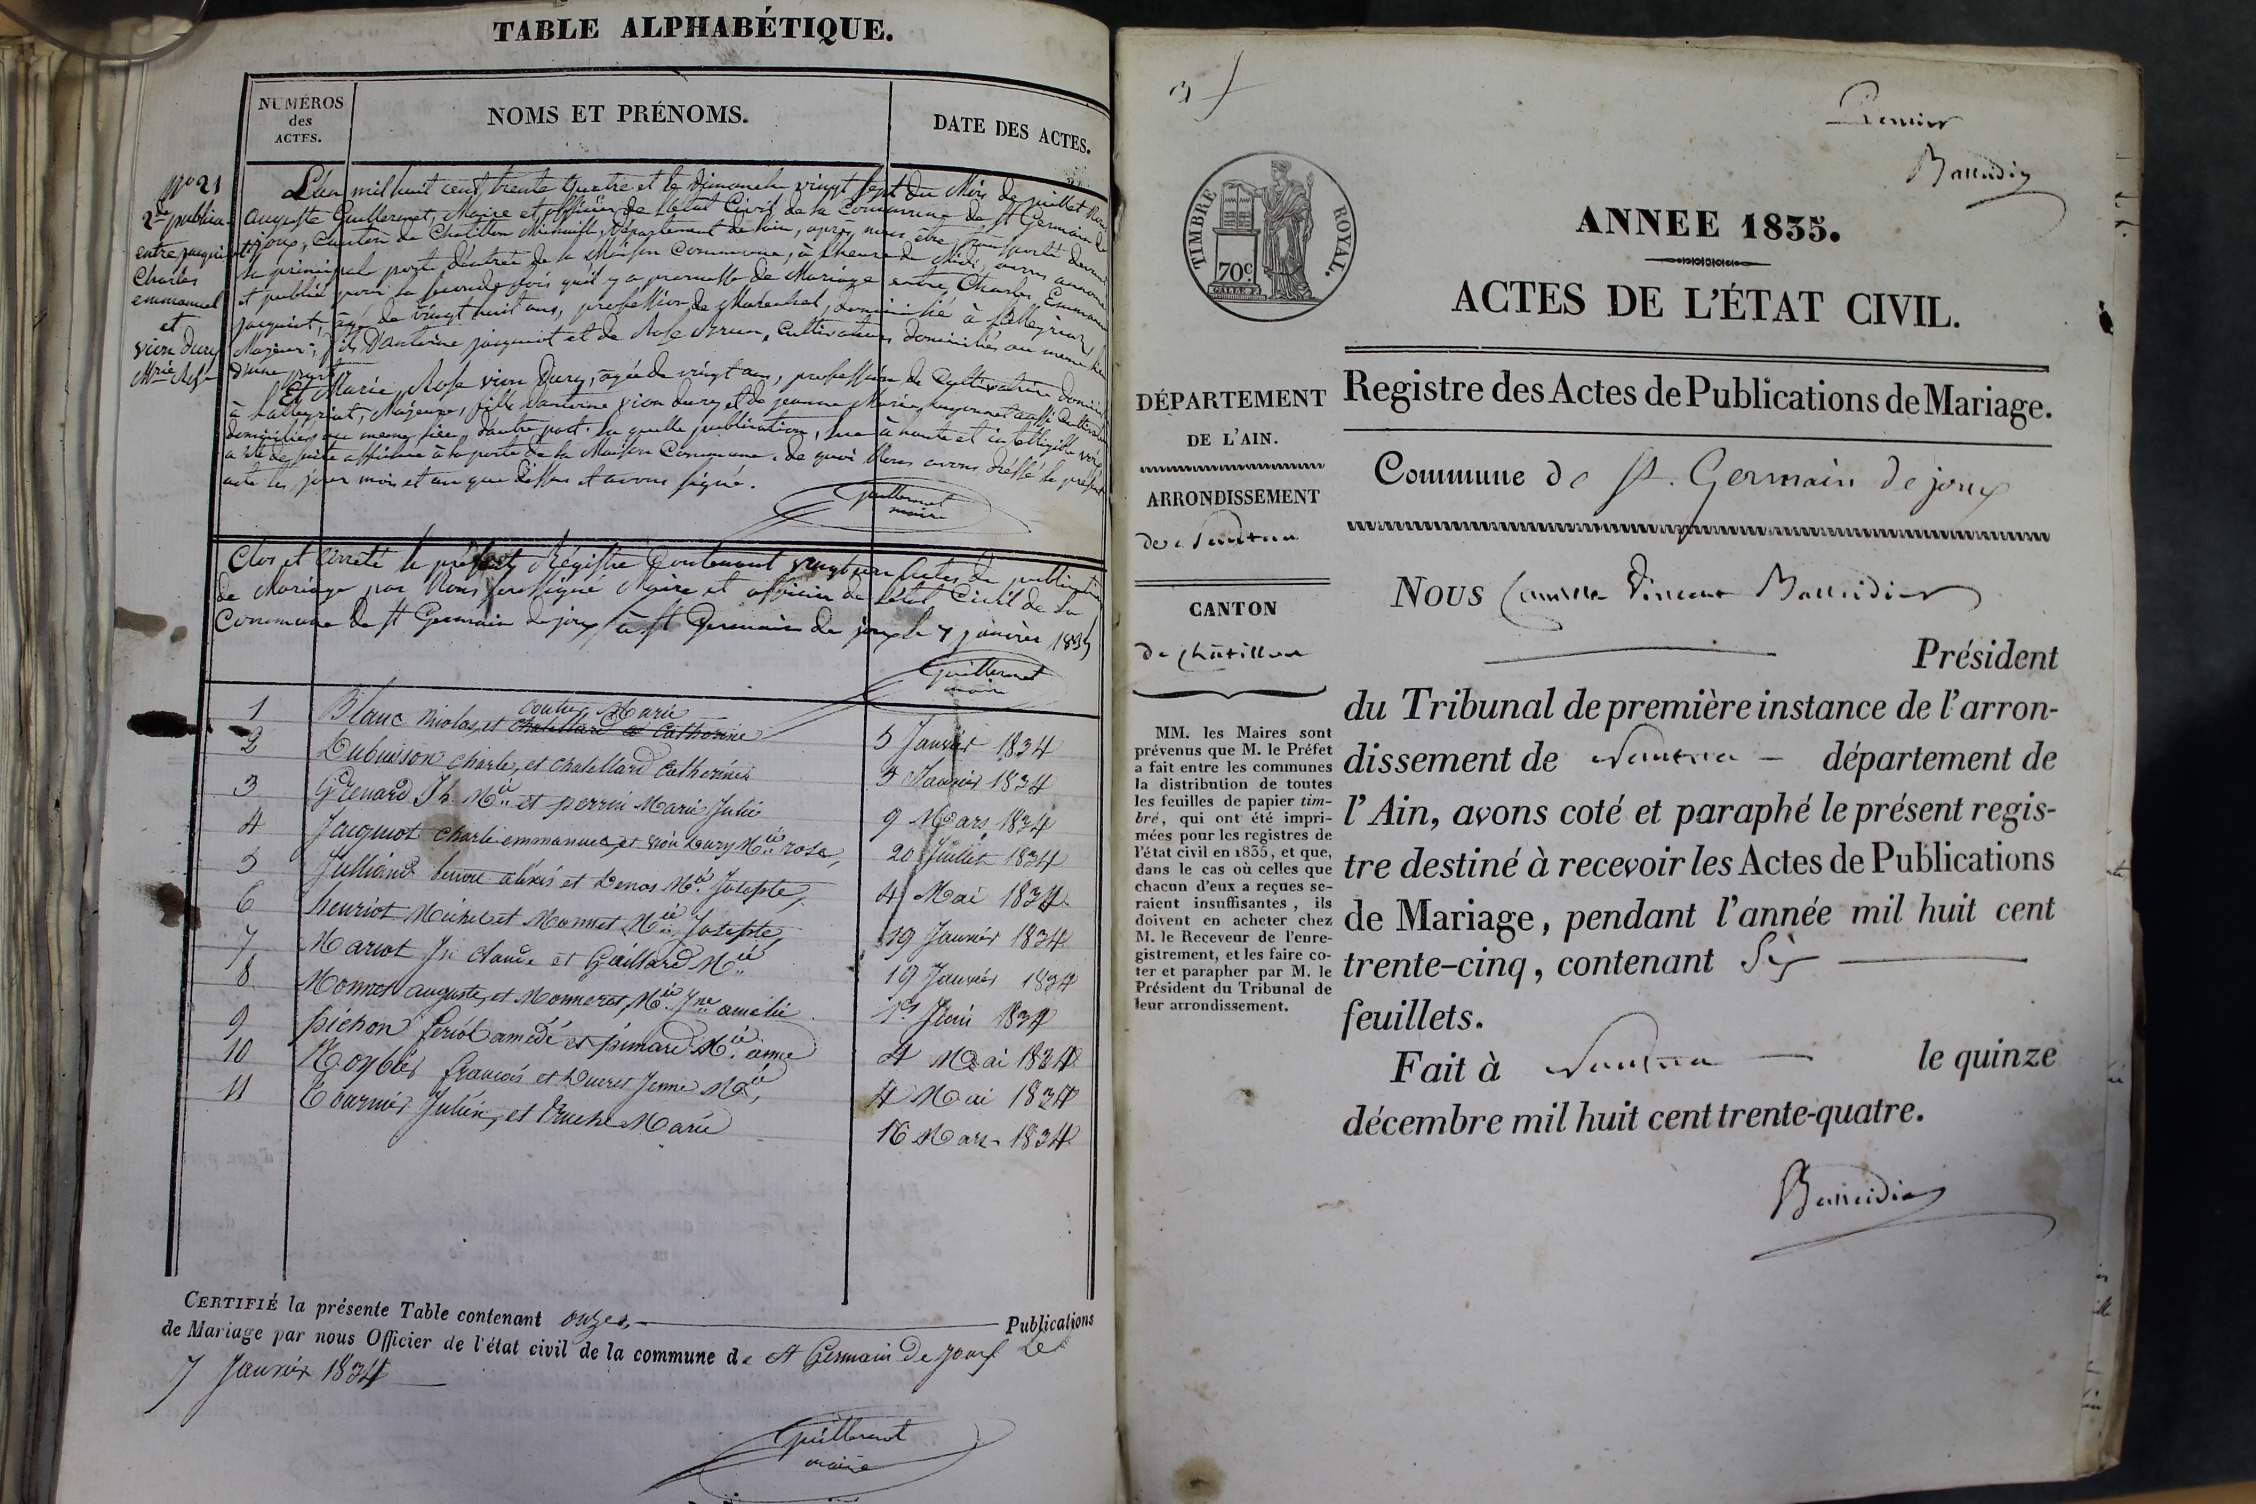 TABLE ALPHABÉTIQUE.
NUMÉROS
des
ACTES.
NOMS ET PRÉNOMS.
DATE DES ACTES.
N° 21
2e publica
entre jacquiot
Charles
emmanuel
et
vion Dury
Mrie Rose
L'an mil huit cent trente quatre et le Dimanche vingt sept du Mois de juillet Nous
auguste Guillermet, Maire et officier de l'état Civil de la Commune de St Germain de
joux, Canton de Chatillon Michaille, Département de l'ain, après nous être transporté devant
la principale porte d'entrée de la Maison Commune, à l'heure de Midi, avons annoncé
et publié pour la seconde fois qu'il y a promesse de Mariage entre Charles Emmanuel
jacquiot, âgé de vingt huit ans, profession de Marechal, Domicilié à
Majeur, fils D'antoine jacquiot et de Rose Brun, Cultivateurs domiciliés au meme lieu
d'une part
Et Marie Rose vion Dury, agée de vingt ans, profession de Cultivatrice domiciliée
à Lalleyriat, Majeure, fille d'antoine vion dury et de jeanne Marie aussi Cultivateurs
domiciliés au meme lieu, d'autre part. la quelle publication, lue à haute et intelligible voix
a été de suite affichée à la porte de la Maison Commune. de quoi Nous avons dréssé le présent
acte les jour mois et an que dessus et avons signé.
Guillermet
maire
Clos et arreté le présent Régistre Contenant vingt un actes de publication
de Mariage par Nous soussigné Maire et officier de l'état Civil de la
Commune de St Germain de joux, à St Germain de joux le 7 janvier 1835
Guillermet
maire
coutier Marie
1 Blanc Nicolas, et Chatellard Catherine 5 Janvier 1834
2 Dubuisson Charle, et Chatellard Catherine 5 Janvier 1834
3 Grenard Jh. Mie et perrin Marie Julie 9 Mars 1834
4 Jacquiot Charle emmanuel, et vion Dury Mie rose, 20 Juillet 1834
5 alexis et Mie Josephte, 4 Mai 1834
6 henriot Michel et Monnet Mie Josephte, 19 Janvier 1834
7 Mariot Jn Claude et Gaillard Mie 19 Janvier 1834
8 Monnet auguste, et Monneret, Mie Jne amelie 1er Juin 1834
9 pichon feriol amédé et pimard Mie aimée 4 Mai 1834
10 François et Ducret Jenne Mie, 4 Mai 1834
11 Tournier Julien, et Truche Marie 16 Mars 1834
CERTIFIÉ la présente Table contenant onzes Publications
de Mariage par nous Officier de l'état civil de la commune de St Germain de joux Le
7 Janvier 1834
Guillermet
maire
Premier
Baudin
TIMBRE ROYAL.
70c.
ANNEE 1835.
ACTES DE L'ÉTAT CIVIL.
DÉPARTEMENT
DE L'AIN.
ARRONDISSEMENT
de Nantua
CANTON
de Châtillon
MM. les Maires sont
prévenus que M. le Préfet
a fait entre les communes
la distribution de toutes
les feuilles de papier tim-
bré, qui ont été impri-
mées pour les registres de
l'état civil en 1835, et que,
dans le cas où celles que
chacun d'eux a reçues se-
raient insuffisantes, ils
doivent en acheter chez
M. le Receveur de l'enre-
gistrement, et les faire co-
ter et parapher par M. le
Président du Tribunal de
leur arrondissement.
Registre des Actes de Publications de Mariage.
Commune de St. Germain de joux
NOUS Camille Vincent
Président
du Tribunal de première instance de l'arron-
dissement de Nantua département de
l'Ain, avons coté et paraphé le présent regis-
tre destiné à recevoir les Actes de Publications
de Mariage, pendant l'année mil huit cent
trente-cinq, contenant Six
feuillets.
Fait à Nantua le quinze
décembre mil huit cent trente-quatre.